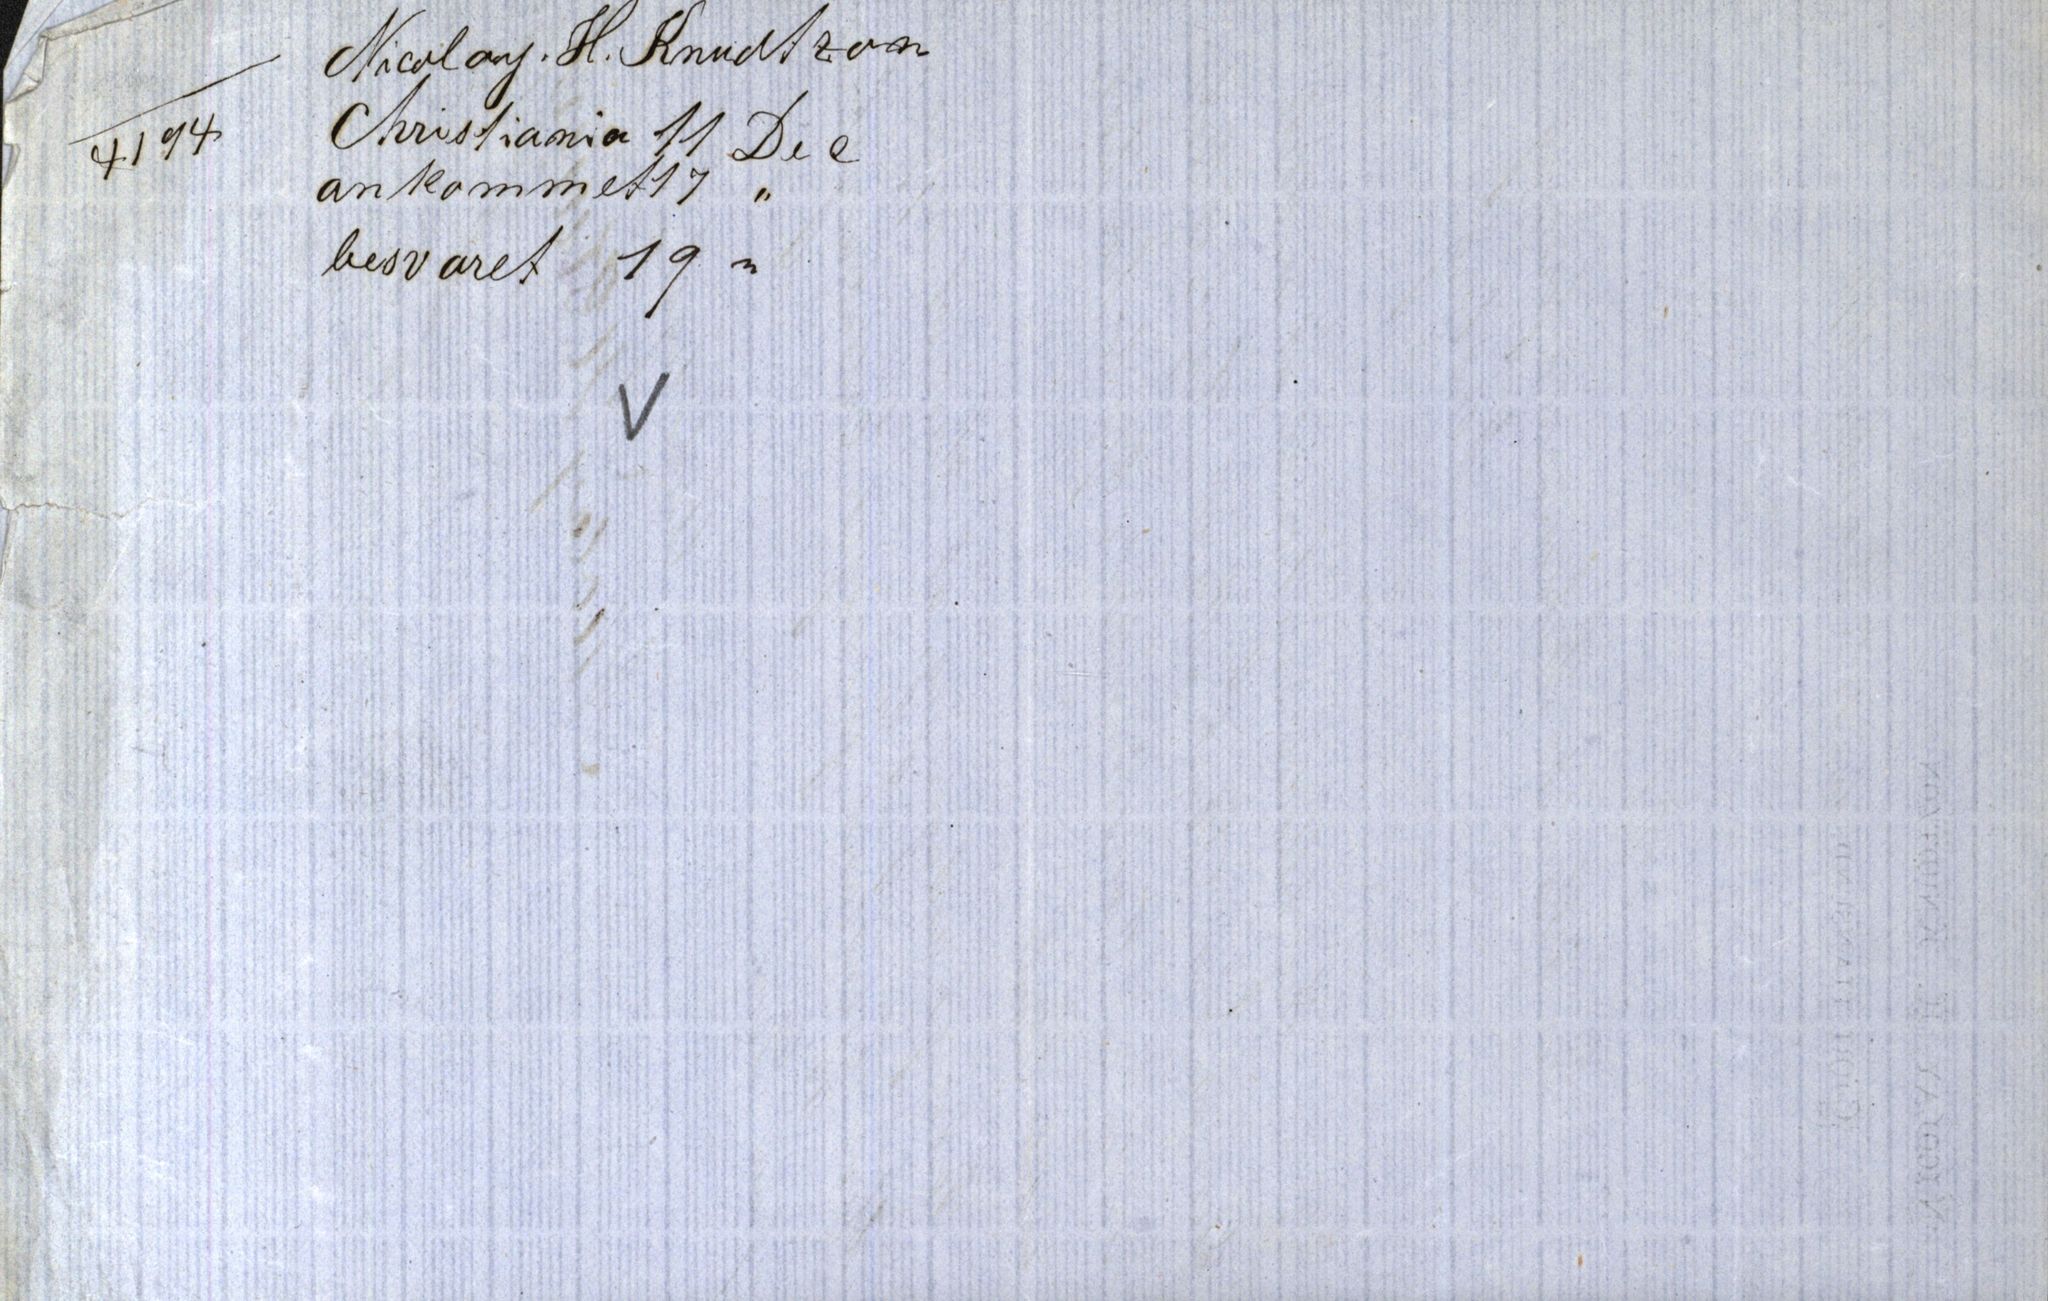 Nicolay. H. Knudtzon
4194
Christiania 11 Dec
ankommet 17 "
besvaret 19 "
V